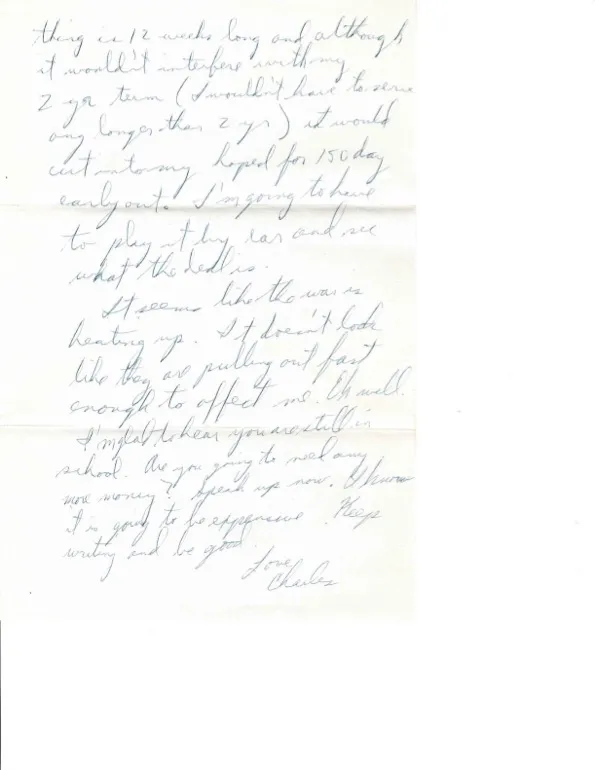 thing is 12 weeks long and although
it wouldn't interfere with my
2 yr term (I wouldn't have to serve
any longer than 2 yr) it would
cut into my hoped for 150 day
early out. I'm going to have
to play it by ear and see
what the deal is.
It seems like the war is
heating up. It doesn't look
like they are pulling out fast
enough to affect me. Oh well.
I'm glad to hear you are still in
school. Are you going to need any
more money? Speak up now. I know
it is going to be expensive. Keep
writing and be good.
Love,
Charles